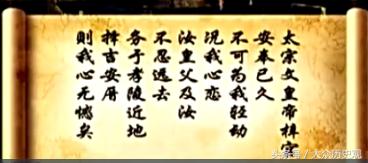 太宗文皇帝梓宫
安奉已久
不可为我轻动
况我心恋
汝皇父及汝
不忍远去
务于孝陵近地
择吉安厝
则我心无憾矣
头条号/大众历史观